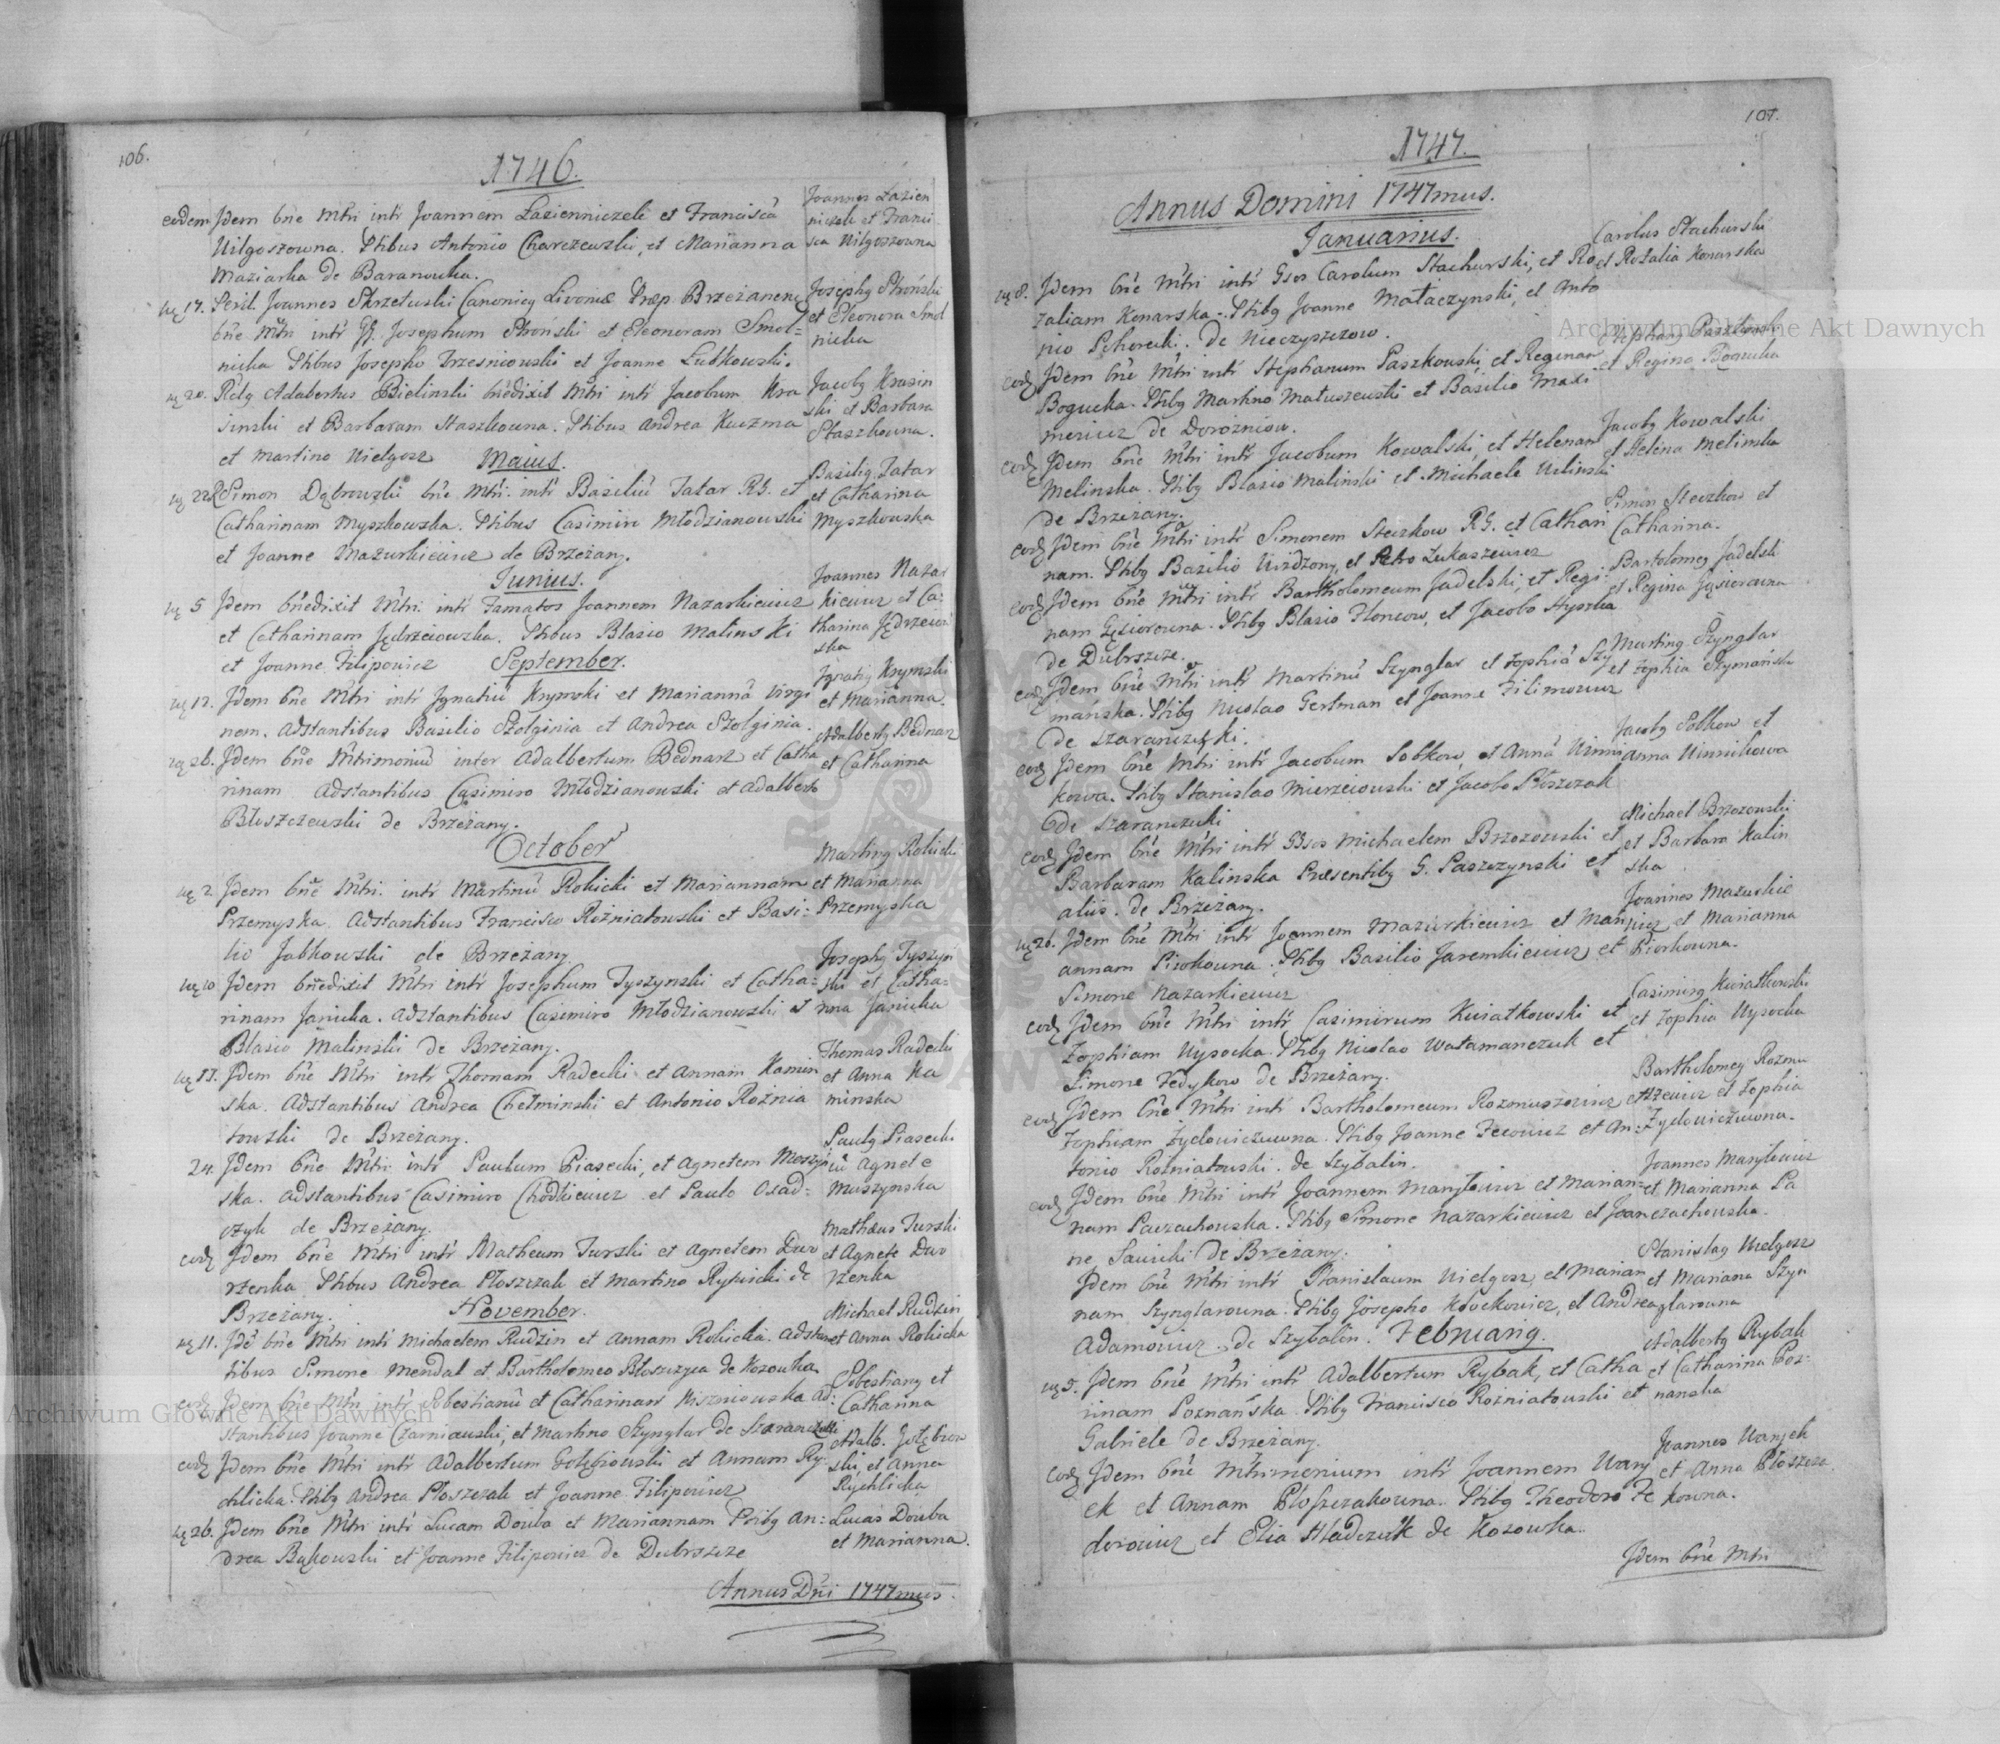 106.
1746.
eodem Jdem bñe Mtri intr Joannem Lazienniczek et Francisca
Uilgoszowna. Stibus Antonio Charczewski, et Marianna
Maziarka de Baranowka.
Joannes Lazien
niczek et Franci
sca Uilgoszowna
17. Joannes Skrzetuski Canonicq Livoniæ Præp Brzezanen
bñe Mtri intr Josephum Stroński et Eleonoram Smol-
nicka Stibus Josepho Trzesniowski et Joanne Lutkowski.
Josephq Stroński
et Eleonora Smol
nicka
20. Adalbertus Bielinski bñedixit Mtri intr Jacobum Kra
sinski et Barbaram Staszkowna. Stibus Andrea Kuzma
et Martino Uielgosz
Jacobq Krasin
ski et Barbara
Staszkowna.
Maius.
22 Simon Dąbrowski bñe Mtri. intr Basiliũ Tatar RG. et
Catharinam Myszkowska. Stibus Casimiro Młodzianowski
et Joanne Mazurkiewicz de Brzeżany.
Basiliq Tatar
et Catharina
Myszkowska
Junius.
5 Jdem bñedixit Mtri. intr Famatos Joannem Nazarkiewicz
et Catharinam Jędrzeiowska. Stibus Blasio Malinski
et Joanne Filipowicz
Joannes Nazar
kiewicz et Ca-
tharina Jędrzeiow
ska
September.
12. Jdem bñe Mtri intr Jgnatiũ Krymski et Mariannã Virgi
nem. Adstantibus Basilio Szolginia et Andrea Szolginia.
Jgnatiq Krymski
et Marianna.
26. Jdem bñe Mtrimoniũ inter Adalbertum Bednarz et Catha
rinam Adstantibus Casimiro Młodzianowski et Adalberto
Błuszczewski de Brzeżany.
Adalbertq Bednarz
et Catharina
October
2. Jdem bñe Mtri. intr Martinũ Rokicki et Mariannam
Przemyska. Adstantibus Francisco Rożniatowski et Basi-
lio Jabkowski de Brzeżany
Martinq Rokicki
et Marianna
Przemyska
10 Jdem bñedixit Mtri intr Josephum Tyszynski et Catha-
rinam Janicka. Adstantibus Casimiro Młodzianowski et
Blasio Malinski de Brzeżany.
Josephq Tyszyn
ski et Catha-
rina Janicka
17. Jdem bñe Mtri intr Thomam Radecki et Annam Kamin
ska. Adstantibus Andrea Chełminski et Antonio Rożnia
towski de Brzeżany.
Thomas Radecki
et Anna Ka
minska
24. Jdem bñe Mtri intr Paulum Piasecki, et Agnetem Moszyń
ska. Adstantibus Casimiro Chodkiewicz et Paulo Osad-
czyk de Brzeżany.
Paulq Piasecki
cũ Agnete
Muszynska
eodq Jdem bñe Mtri intr Matheum Turski et Agnetem Dwo
rzenka Stibus Andrea Płoszczak et Martino Rypicki de
Brzeżany.
Mathæus Turski
et Agnete Dwo
rzenka
November.
11. Jdẽ bñe Mtri intr Michaelem Rudzin et Annam Rokicka. Adstan
tibus Simone Mendal et Bartholomeo Błoszczyca de Kozowka
Michael Rudzin
et Anna Rokicka
eodq Jdem bñe Mtri intr Sebestianũ et Catharinam Ad-
stantibus Joanne Czarniawski, et Martino Szynglar de Szaranczuki
Sebestianq et
Catharina
eodq Jdem bñe Mtri intr Adalbertum Gołębiowski et Annam Ry-
chlicka. Stibq Andrea Płoszczak et Joanne Filipowicz
Adalb. Gołębiow
ski et Anna
Rychlicka
26. Jdem bñe Mtri intr Lucam Douba et Mariannam Stibq An-
drea Bąkowski et Joanne Filipowicz de Dubrszcze
Lucas Douba
et Marianna.
Annus Dñi 1747mus.
107.
1747.
Annus Domini 1747mus.
Januarius.
8. Jdem bñe Mtri intr Gsos Carolum Stachurski, et Ro
zaliam Konarska. Stibq Joanne Małaczynski, et Anto
nio de Nieczyszczow.
Carolus Stachurski
et Rozalia Konarska
eodq Jdem bñe Mtri intr Stephanum Paszkowski, et Reginam
Bogucka. Stibq Martino Matuszewski et Basilio Maxi
mowicz de Dorożniow.
Stephanq Paszkowski
et Regina Bogucka
eodq Jdem bñe Mtri intr Jacobum Kowalski, et Helenam
Melinska. Stibq Blasio Malinski et Michaele Uilinski
de Brzeżany.
Jacobq Kowalski
et Helena Melinska
eodq Jdem bñe Mtri intr Simonem Steczkow RG. et Cathari
nam. Stibq Basilio et Petro Łukaszewicz
Simon Steczkow et
Catharina.
eodq Jdem bñe Mtri intr Bartholomeum Jadelski, et Regi-
nam Gąsiorowna. Stibq Blasio et Jacobo Hyszka
de Dubrszcze.
Bartolomeq Jadelski
et Regina Gąsiorowna
eodq Jdem bñe Mtri intr Martinũ Szynglar et Zophiã Szy
mańska. Stibq Nicolao Gertman et Joanne Filimowicz
de Szaranczuki.
Martinq Szynglar
et Zophia Szymańska
eodq Jdem bñe Mtri intr Jacobum Sobkow, et Annã Uinni
kowa. Stibq Stanislao Mierzeiowski et Jacobo Płoszczak
de Szaranczuki
Jacobq Sobkow et
Anna Uinnikowa
eodq Jdem bñe Mtri intr Gsos Michaelem Brzozowski et
Barbaram Kalinska Præsentibq G. Paszczynski et
aliis. de Brzeżany.
Michael Brzozowski
et Barbara Kalin
ska
26. Jdem bñe Mtri intr Joannem Mazurkiewicz et Mari
annam Piorkowna. Stibq Basilio Jaremkiewicz et
Simone Nazarkiewicz
Joannes Mazurkie
wicz et Marianna
Piorkowna.
eodq Jdem bñe Mtri intr Casimirum Kwiatkowski et
Zophiam Uysocka. Stibq Nicolao Watamanczuk et
Simone Fedykow de Brzeżany.
Casimirq Kwiatkowski
et Zophia Uysocka
eodq Jdem bñe Mtri intr Bartholomeum Rozmuszewicz et
Zophiam Zydowiczuwna. Stibq Joanne Fecowicz et An-
tonio Rożniatowski. de Szybalin.
Bartholomeq Rozmu
szewicz et Zophia
Zydowiczuwna.
eodq Jdem bñe Mtri intr Joannem Manylewicz et Marian-
nam Paczachowska. Stibq Simone Nazarkiewicz et Joan
ne Sawicki de Brzeżany.
Joannes Manylewicz
et Marianna Pa
czachowska.
Jdem bñe Mtri intr Stanislaum Uielgosz, et Marian
nam Szynglarowna. Stibq Josepho Kłockowicz, et Andrea
Adamowicz de Szybalin.
Stanislaq Uielgosz
et Mariana Szyn
glarowna
Februariq.
5. Jdem bñe Mtri intr Adalbertum Rybak, et Catha
rinam Poznańska. Stibq Francisco Rożniatowski et
Gabriele de Brzeżany.
Adalbertq Rybak
et Catharina Poz-
nanska
eodq Jdem bñe Mtrimonium intr Joannem Wany
ek et Annam Płoszczakowna. Stibq Theodoro Fe
dorowicz et Elia Hładczuk de Kozowka.
Joannes Wanyek
et Anna Płoszcza
kowna.
Jdem bñe Mtri
Archiwum Główne Akt Dawnych
Archiwum Główne Akt Dawnych